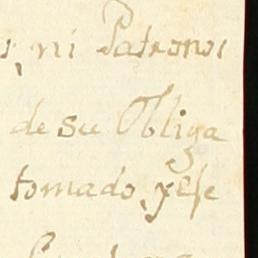 ni Patronos
de su Obliga
tomado, y ese